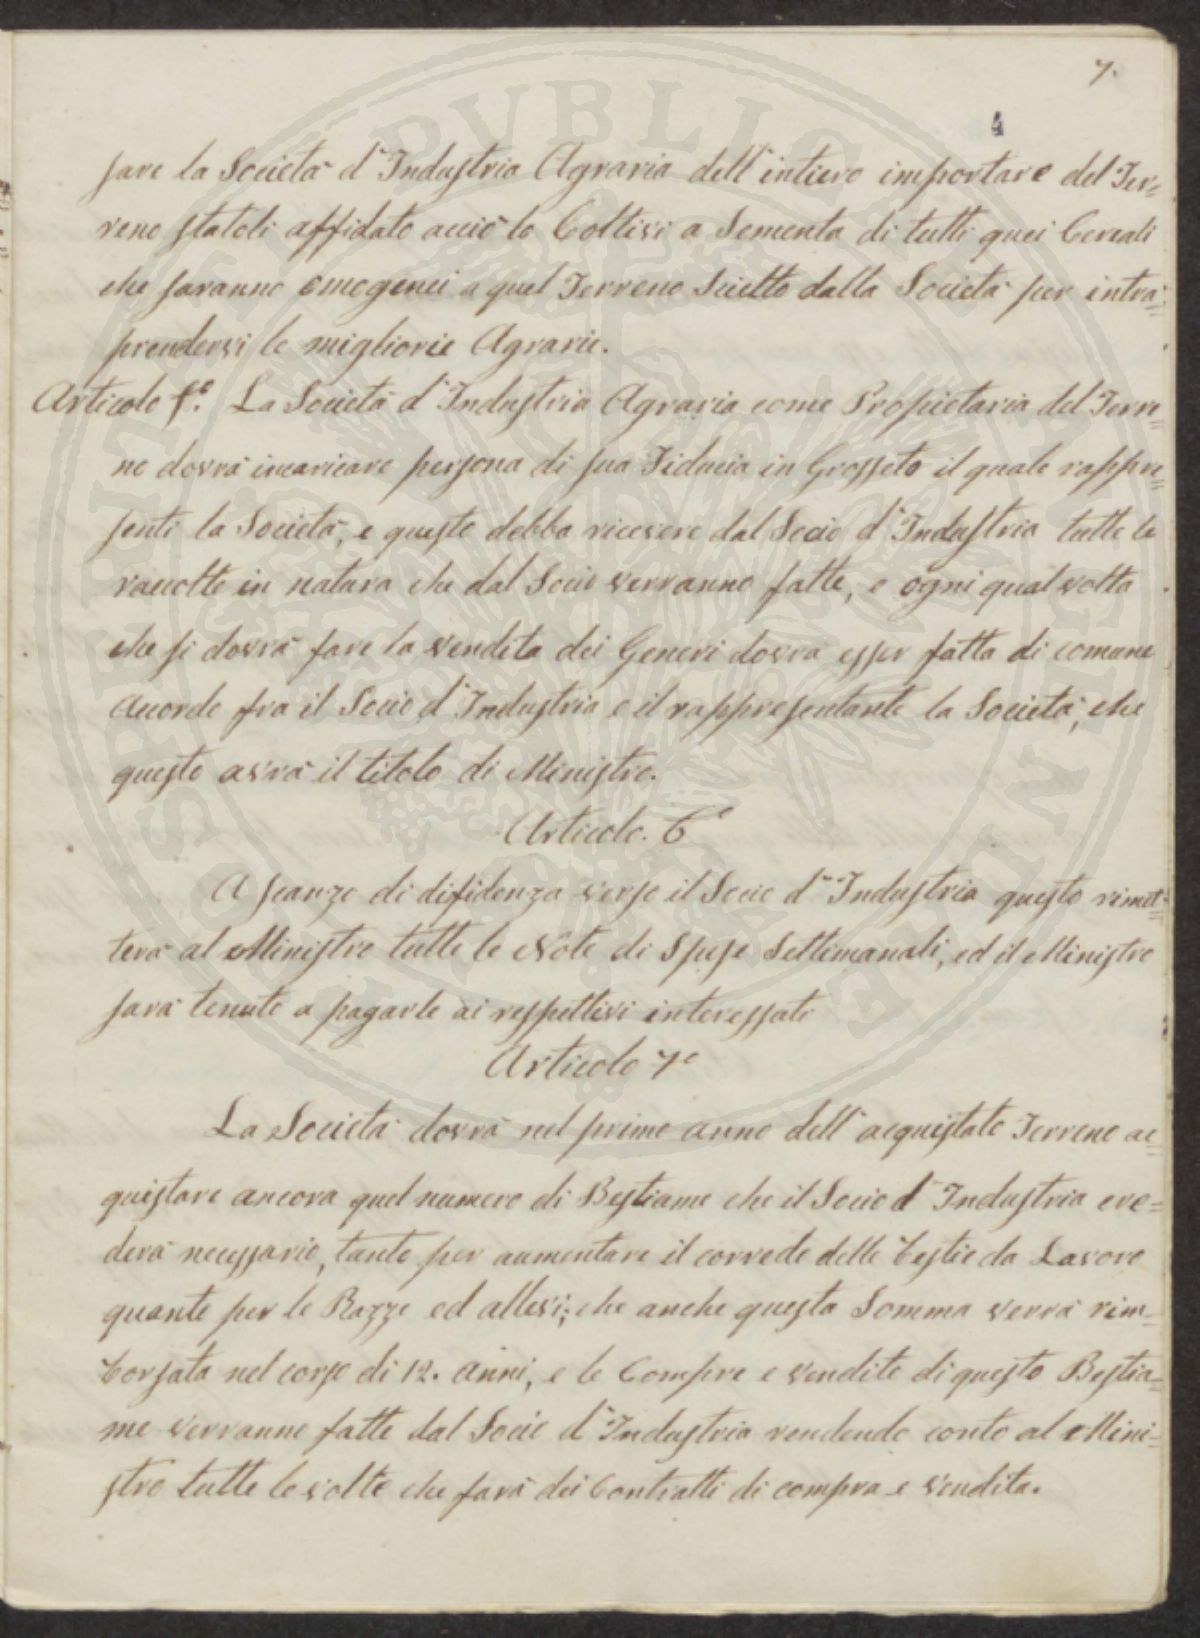 7.
4
sare la Società d'Industria Agraria dell'intiero importare del Ter=
reno statoli affidato acciò lo Coltivi a Sementa di tutti quei Cereali
che saranno omogenei a quel Terreno Scielto dalla Società per intra=
prendervi le migliorie Agrarie.
Articolo 5°. La Società d'Industria Agraria come Propietaria del Terre=
no dovrà incaricare persona di sua Fiducia in Grosseto il quale rappre=
senti la Società, e questo debba ricevere dal Socio d'Industria tutte le
raccolte in natura che dal Socio verranno fatte, e ogni qual volta
che si dovrà fare la vendita dei Generi dovrà esser fatta di comune
accordo fra il Socio d'Industria e il rappresentante la Società, che
questo avrà il titolo di Ministro.
Articolo. 6°
A scanzo di difidenza verso il Socio d'Industria questo rimet=
terà al Ministro tutte le Note di Spese Settimanali, ed il Ministro
sarà tenuto a pagarle ai respettivi interessati
Articolo 7°
La Società dovrà nel primo anno dell'acquistato Terreno ac=
quistare ancora quel numero di Bestiame che il Socio d'Industria cre=
derà necessario, tanto per aumentare il corredo delle bestie da Lavoro
quanto per le Razze ed allevi; che anche questa Somma verrà rim=
borsata nel corso di 12. anni, e le Compre e vendite di questo Bestia=
me verranno fatte dal Socio d'Industria rendendo conto al Mini=
stro tutte le volte che farà dei Contratti di compra e vendita.
PUBLIC